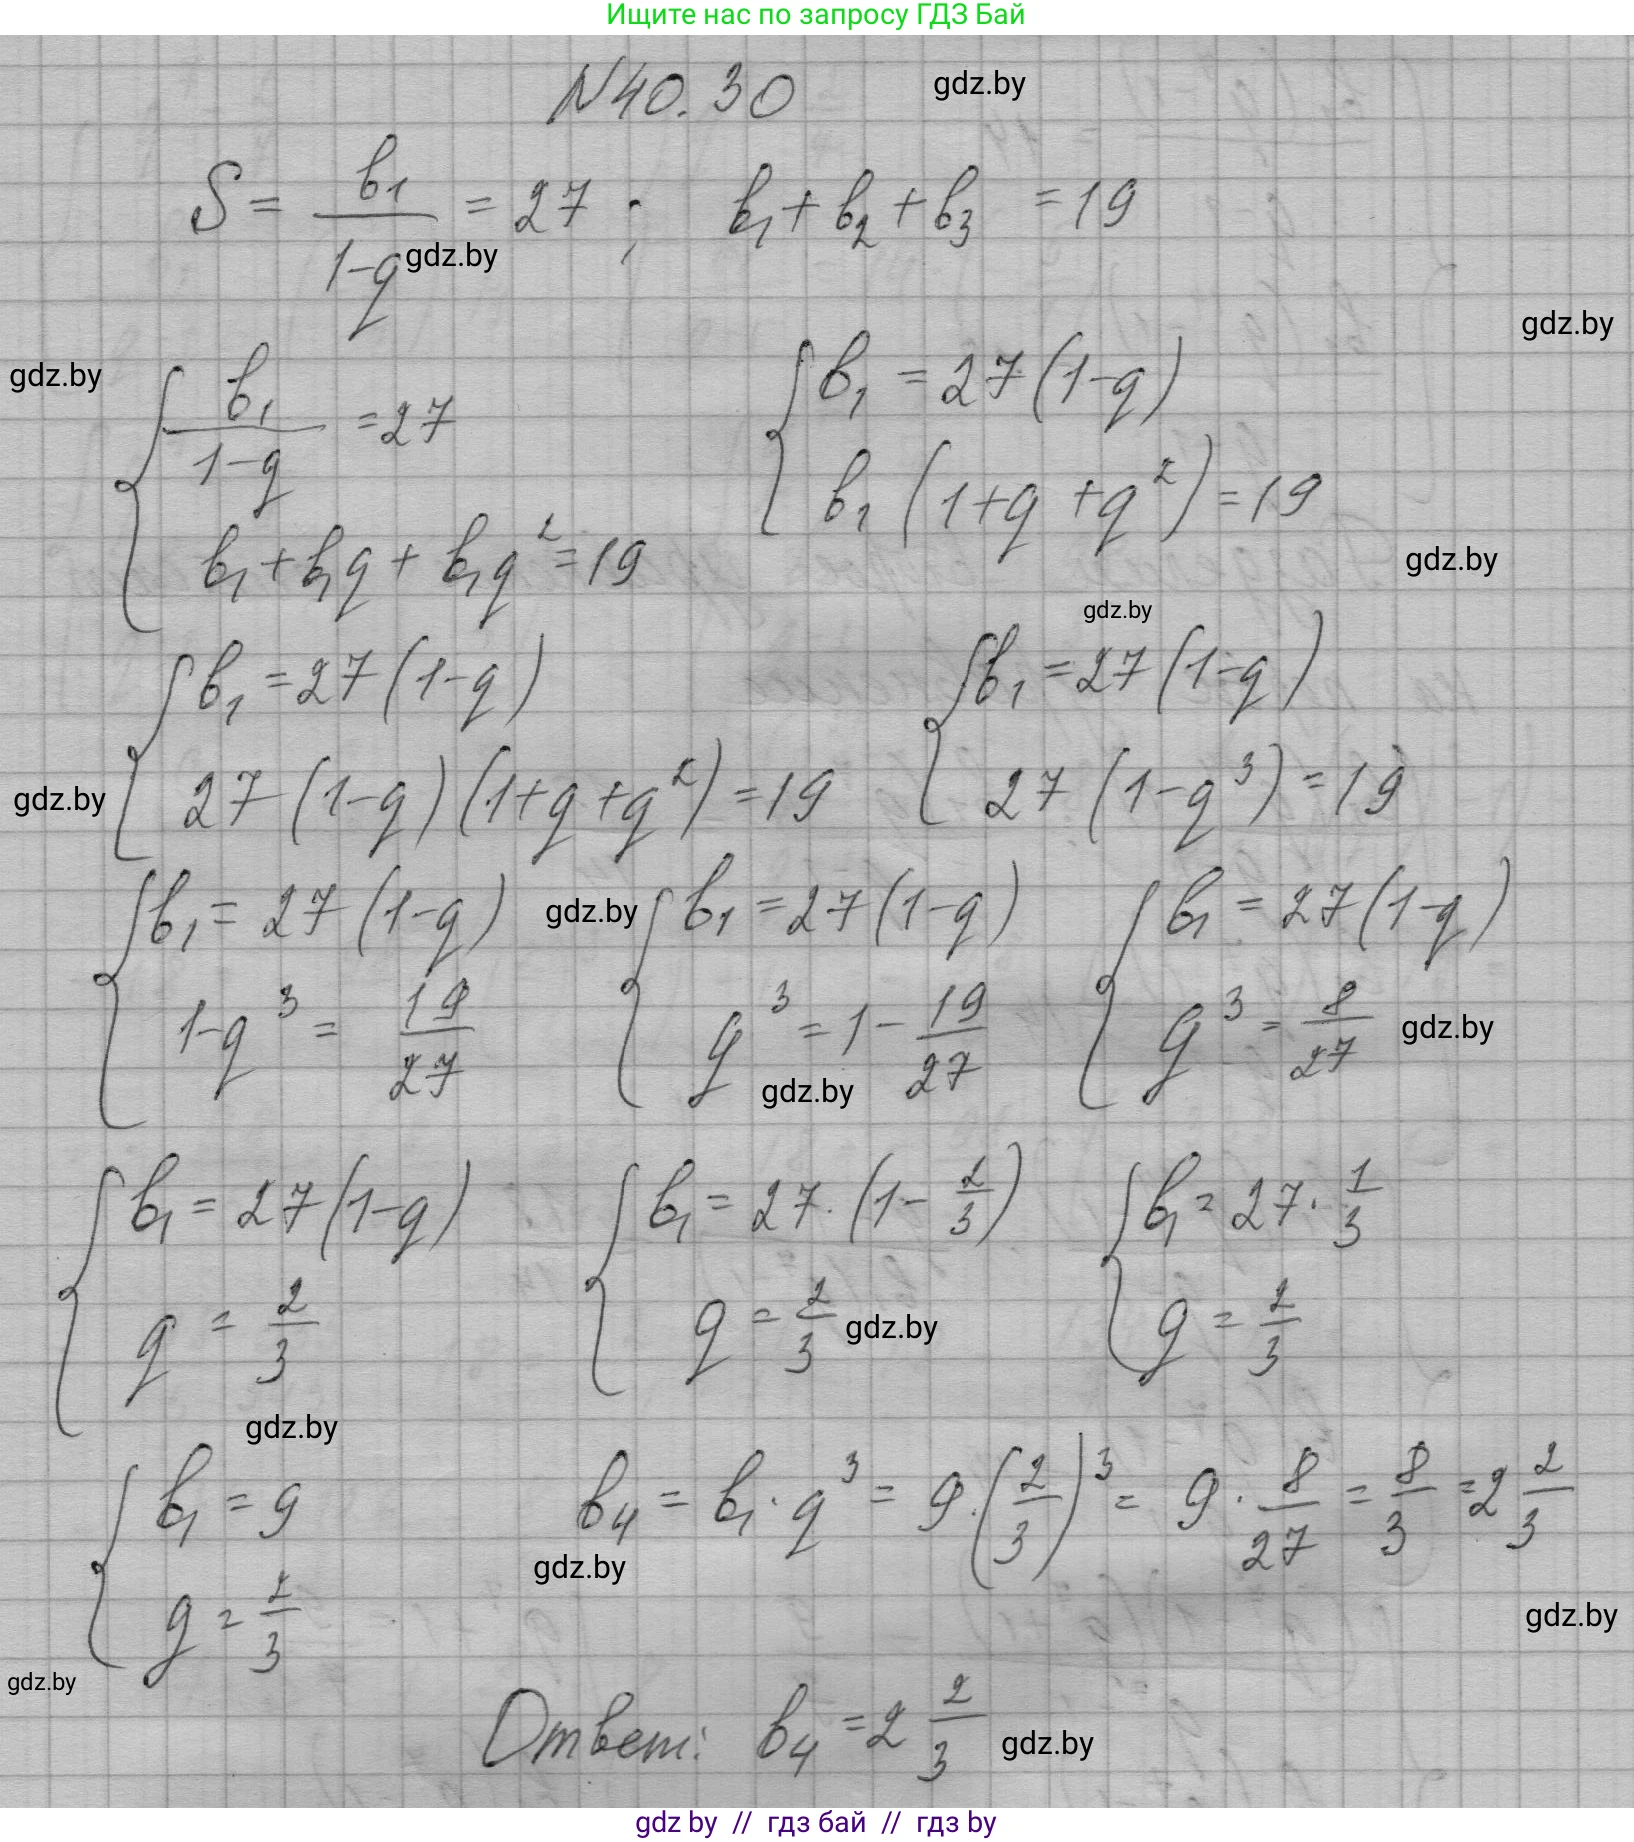 Ищите нас по запросу ГДЗ Бай
N40.30
gdz.by
S = b₁/(1-q) = 27 ; b₁ + b₂ + b₃ = 19
gdz.by
gdz.by
gdz.by
{ b₁/(1-q) = 27
b₁ + b₁q + b₁q² = 19
{ b₁ = 27(1-q)
b₁(1+q+q²) = 19
gdz.by
gdz.by
{ b₁ = 27(1-q)
27(1-q)(1+q+q²) = 19
{ b₁ = 27(1-q)
27(1-q³) = 19
gdz.by
{ b₁ = 27(1-q)
1-q³ = 19/27
gdz.by
{ b₁ = 27(1-q)
q³ = 1 - 19/27
gdz.by
{ b₁ = 27(1-q)
q³ = 8/27
gdz.by
{ b₁ = 27(1-q)
q = 2/3
{ b₁ = 27·(1 - 2/3)
q = 2/3
gdz.by
{ b₁ = 27·1/3
q = 2/3
gdz.by
{ b₁ = 9
q = 2/3
b₄ = b₁·q³ = 9·(2/3)³ = 9·8/27 = 8/3 = 2 2/3
gdz.by
gdz.by
gdz.by
Ответ: b₄ = 2 2/3
gdz.by
gdz by // гдз бай // гдз by